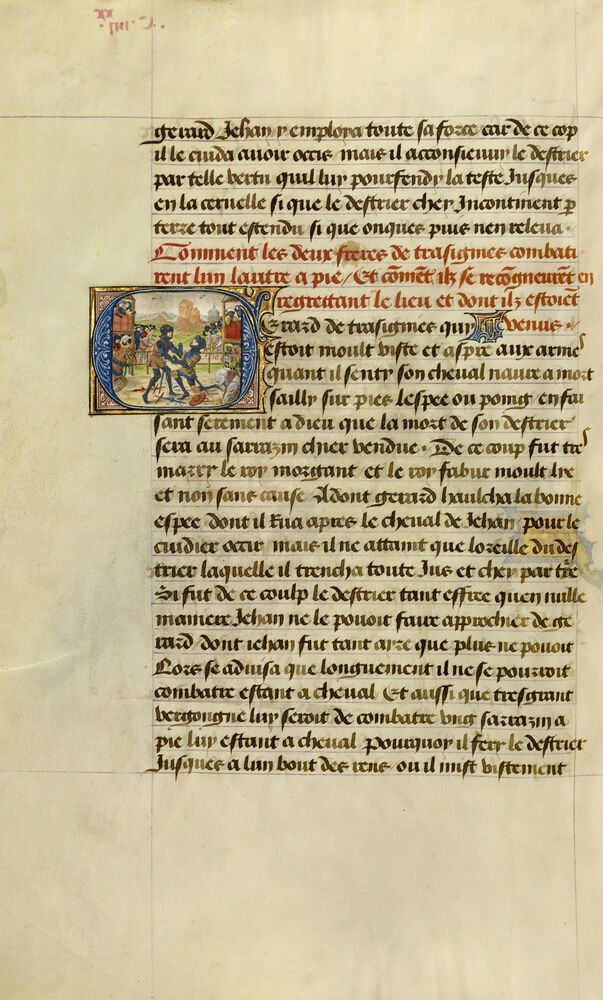 gerard Jehan y employa toute sa force car de ce cop
il le cuida avoir occis mais il acconsieuvy le destrier
par telle vertu quil luy pourfendy la teste Jusques
en la cervelle si que le destrier chey Incontinent p
terre tout estendu si que onques puis nen releva .
Comment les deux freres de trasignies combati
rent lun lautre a pie / Et comẽt ilz se recõgneurẽt en
regrettant le lieu et dont ilz estoiẽt
Gerard de trasignies quy venus .
estoit moult viste et aspre aux armes
quant il senty son cheval navre a mort
sailly sur pies lespee ou poing en fai
sant serement a dieu que la mort de son destrier
sera au sarrazin chier vendue . De ce coup fut tres
marry le roy morgant et le roy fabur moult lye
et non sans cause Adont gerard haulcha la bonne
espee dont il Rua apres le cheval de Jehan pour le
cuidier occir mais il ne attaint que loreille du des
trier laquelle il trencha toute Jus et chey par tre
Si fut de ce coulp le destrier tant effree quen nulle
maniere Jehan ne le pouoit faire approchier de ge
rard dont iehan fut tant yre que plus ne pouoit
Lors se advisa que longuement il ne se pourroit
combatre estant a cheval Et aussi que tresgrant
vergongne luy seroit de combatre ung sarrazin a
pie luy estant a cheval Pourquoy il fery le destrier
Jusques a lun bout des rens ou il mist vistement